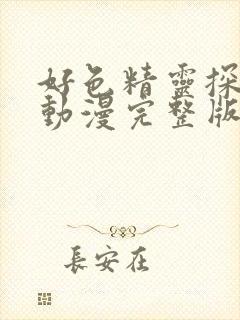 好色精靈探
動漫完整版
長安在